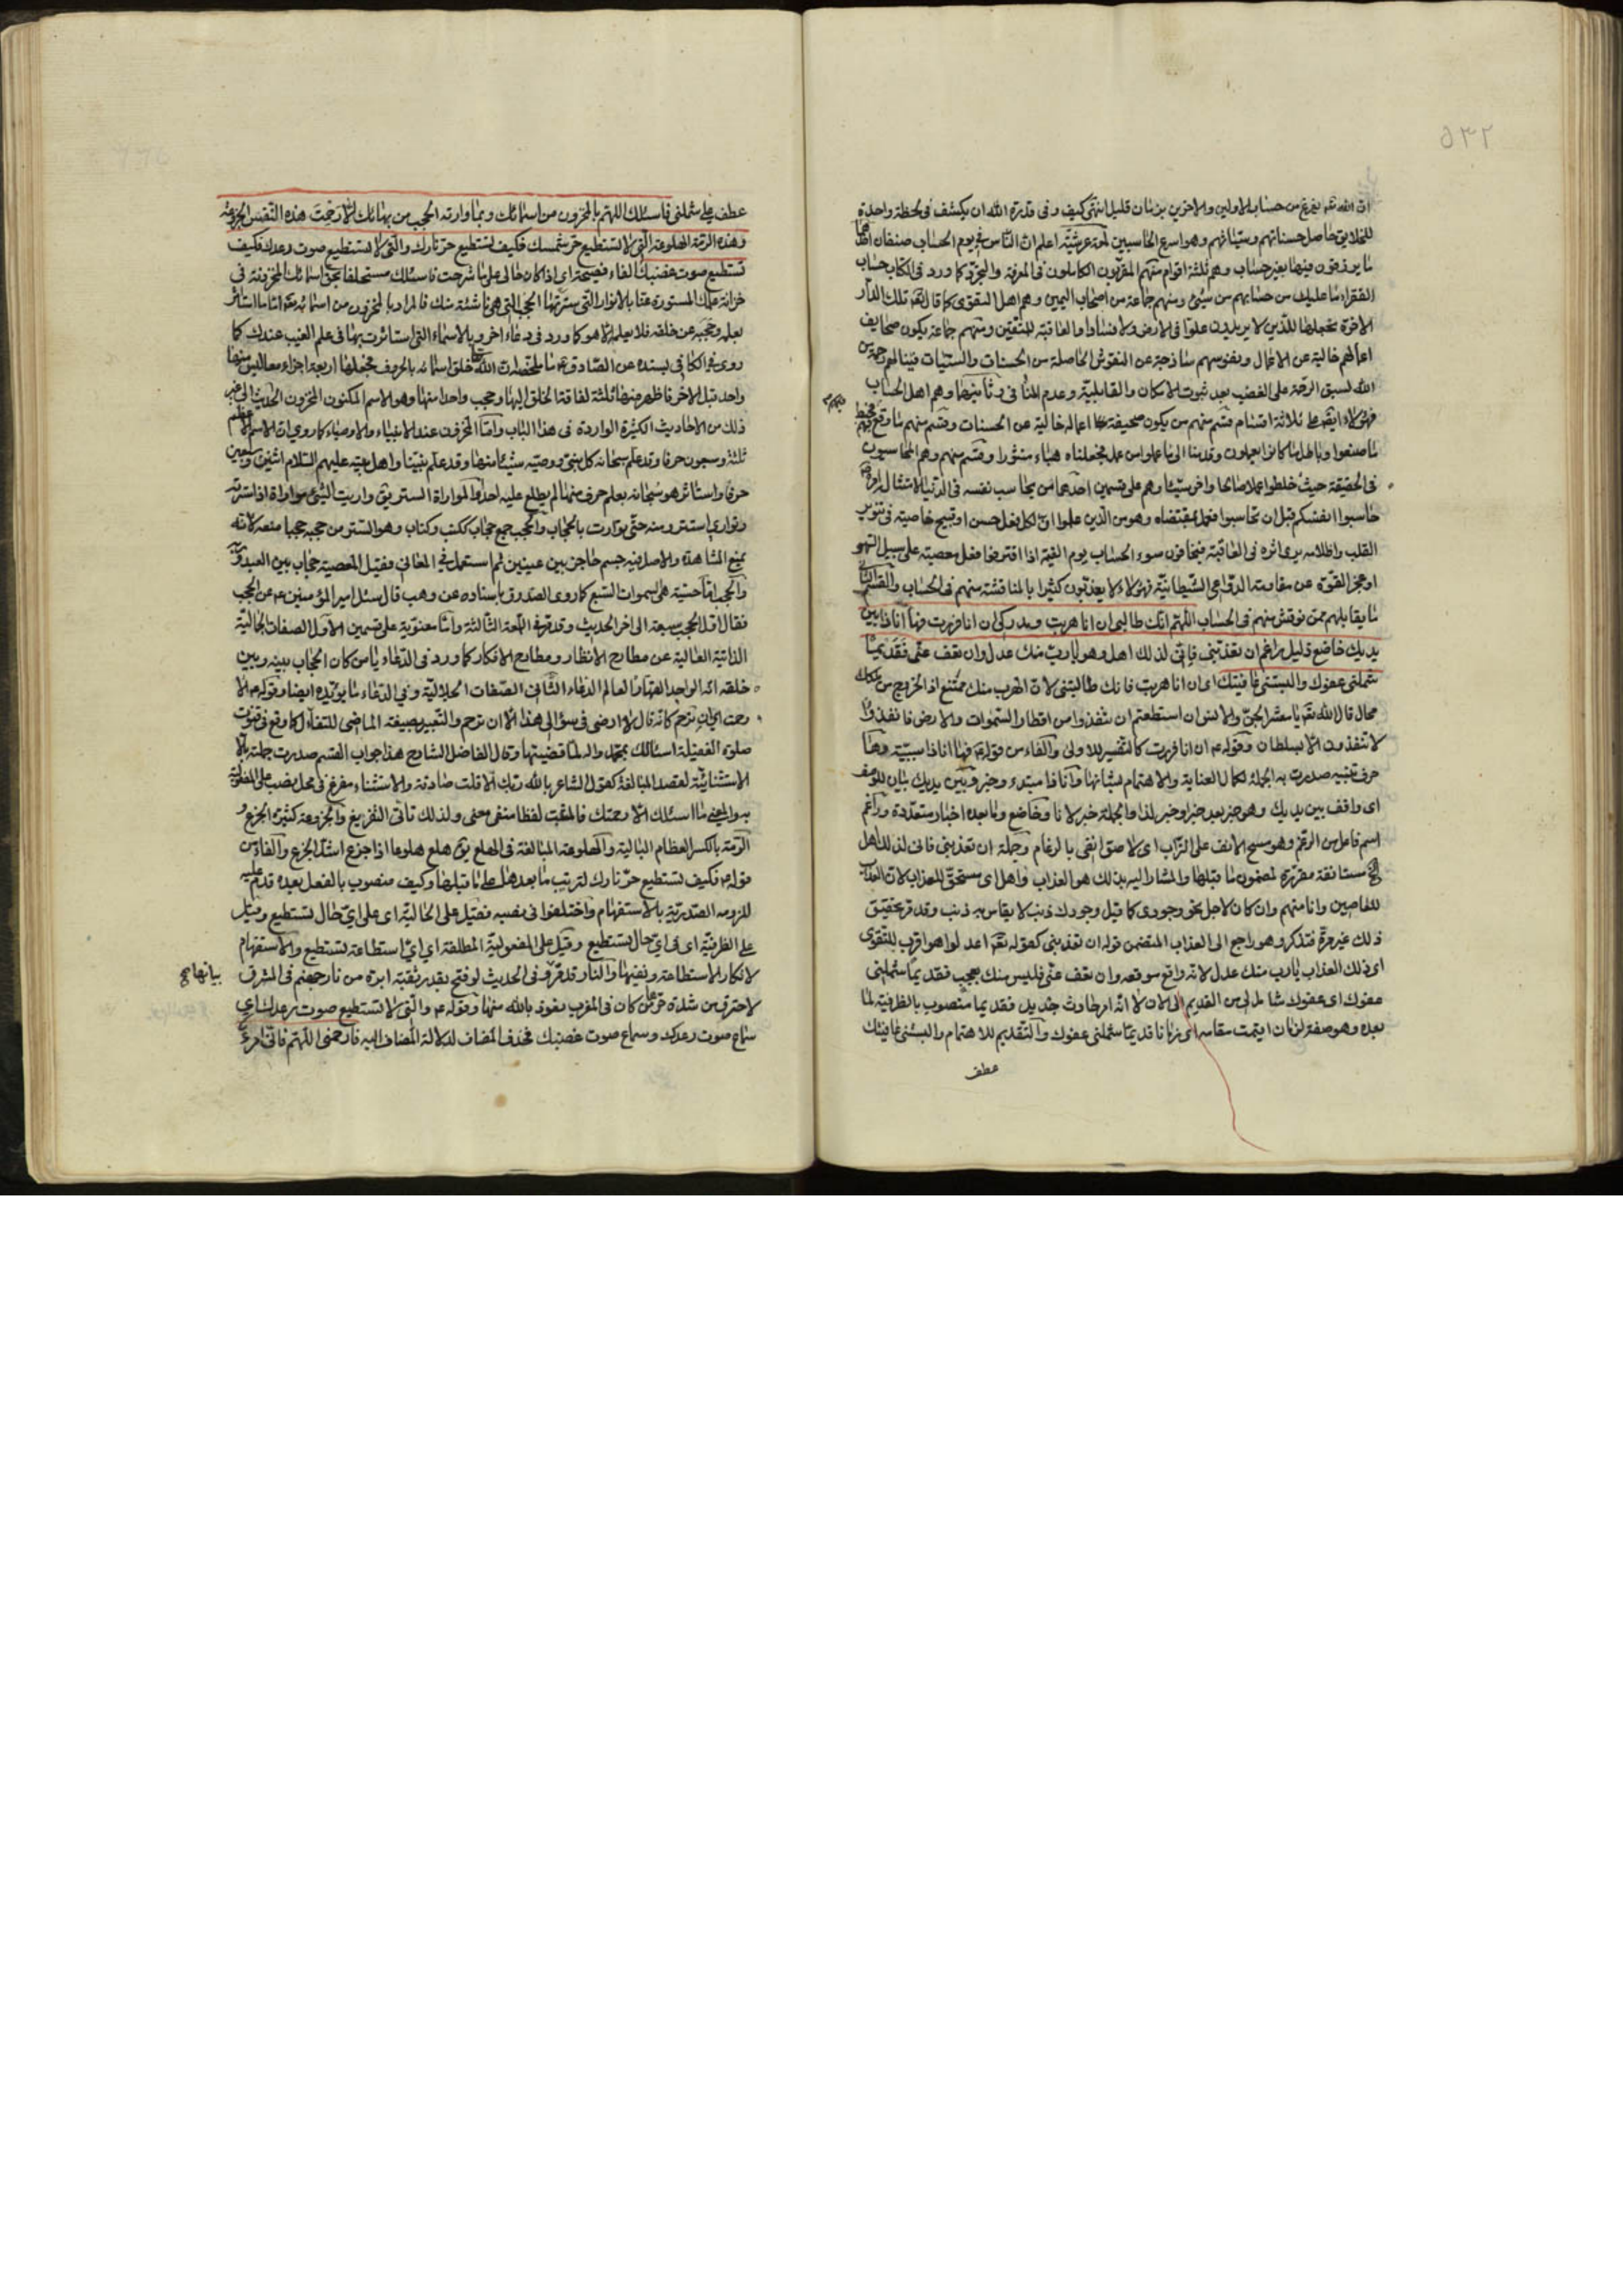 ٥٣٢
ان الله تعالى يفرغ من حساب الاولين والاخرين بزمان قليل انتهى كيف وفى قدرة الله ان يكشف فى لحظة واحدة
للخلايق حاصل حسناتهم وسيئاتهم وهو اسرع الحاسبين لمعة عرشية اعلم ان الناس فى يوم الحساب صنفان
يرزقون فيها بغير حساب وهم ثلثة اقوام منهم المقربون الكاملون فى المعرفة والتجرد كما ورد فى الكتاب حساب
الفقراء ما عليك من حسابهم من شئ ومنهم جماعة من اصحاب اليمين وهم اهل التقوى كما قال تعالى تلك الدار
الاخرة نجعلها للذين لا يريدون علوا فى الارض ولا فسادا والعاقبة للمتقين ومنهم جماعة يكون صحايف
اعمالهم خالية عن الاعمال ونفوسهم ساذجة عن النقوش الحاصلة من الحسنات والسيئات فينالهم رحمة من
الله لسبق الرحمة على الغضب بعد ثبوت الامكان والقابلية وعدم المنافى وهم اهل الحساب
فهؤلاء ايضا على ثلاثة اقسام قسم منهم من يكون صحيفة اعماله خالية عن الحسنات وقسم منهم ما وقع فيهم
ما صنعوا وباطل ما كانوا يعملون وقدمنا الى ما عملوا من عمل فجعلناه هباء منثورا وقسم منهم وهم المحاسبون
فى الحقيقة حيث خلطوا عملا صالحا واخر سيئا وهم على قسمين احدهما من يحاسب نفسه فى الدنيا لامتثال امره
حاسبوا انفسكم قبل ان تحاسبوا فعمل بمقتضاه وهو من الذين علموا ان لكل فعل حسن او قبيح خاصية فى تنوير
القلب واظلامه يرى اثره فى العاقبة فيخافون سوء الحساب يوم القيمة اذا اقترفوا فعل معصية على سبيل السهو
او عجز القوة عن مقاومة الدواعى الشيطانية فهؤلاء لا يعذبون كثيرا بالمناقشة منهم فى الحساب والقسم الثانى
ما يقابلهم ممن نوقش منهم فى الحساب اللهم انك طالبى ان انا هربت ومدركى ان انا فررت فها انا ذا بين
يديك خاضع ذليل راغم ان تعذبنى فانى لذلك اهل وهو يا رب منك عدل وان تعف عنى فقديما
شملنى عفوك والبستنى عافيتك اى ان انا هربت فانك طالبتنى لان الهرب منك ممتنع اذ الخروج من ملكك
محال قال الله تعالى يا معشر الجن والانس ان استطعتم ان تنفذوا من اقطار السموات والارض فانفذوا
لا تنفذون الا بسلطان وقوله ع ان انا فررت كالتفسير للاولى والفاء من قوله ع فها انا ذا سببية وها
حرف تنبيه صدرت به الجملة لكمال العناية والاهتمام بشانها وانا ذا مبتدء وخبر وبين يديك بيان للوصف
اى واقف بين يديك وهو خبر بعد خبر او خبر لذا والجملة خبر لانا وخاضع وما بعده اخبار متعددة وراغم
اسم فاعل من الرغم وهو مسح الانف على التراب اى لاصق انفى بالرغام وجملة ان تعذبنى فانى لذلك اهل
مستانفة مقررة لمضمون ما قبلها والمشار اليه بذلك هو العذاب واهل اى مستحق للعذاب لان العذاب
للعاصين وانا منهم وان كان لاجل نحو وجودى كما قيل وجودك ذنب لا يقاس به ذنب وقد مر تحقيق
ذلك غير مرة فتذكر وهو راجع الى العذاب المتضمن قوله ان تعذبنى كقوله تعالى اعدلوا هو اقرب للتقوى
اى ذلك العذاب يا رب منك عدل لانه واقع موقعه وان تعف عنى فليس منك بعجيب فقديما شملنى
عفوك اى عفوك شامل لى من القديم الى الان لا انه امر حادث جديد فقديما منصوب بالظرفية لما
بعده وهو صفة لزمان اقيمت مقامه اى زمانا قديما شملنى عفوك والتقديم للاهتمام والبستنى عافيتك
عطف
عطف على شملنى فاسئلك اللهم بالمخزون من اسمائك وبما وارته الحجب من بهائك الا رحمت هذه النفس الجزوعة
وهذه الرمة الهلوعة التى لا تستطيع حر شمسك فكيف تستطيع حر نارك والتى لا تستطيع صوت رعدك فكيف
تستطيع صوت غضبك الفاء فصيحة اى اذا كان حالى على ما شرحت فاسئلك مستحلفا بحق اسمائك المخزونة فى
خزانة علمك المستورة عنا بالانوار التى سترتها الحجب التى هى ناشئة منك فالمراد بالمخزون من اسمائه تعالى اما ما استاثر
بعلمه وحجبه عن خلقه فلا يعلمه الا هو كما ورد فى دعاء اخر وبالاسماء التى استاثرت بها فى علم الغيب عندك كما
روى فى الكافى بسنده عن الصادق ع ما ملخصه ان الله تعالى خلق اسمائه بالحروف فجعلها اربعة اجزاء معا ليس منها
واحد قبل الاخر فاظهر منها ثلثة لفاقة الخلق اليها وحجب واحدا منها وهو الاسم المكنون المخزون الحديث الى غير
ذلك من الاحاديث الكثيرة الواردة فى هذا الباب واما المخزون عند الانبياء والاوصياء كما روى ان الاسم الاعظم
ثلثة وسبعون حرفا وقد علم سبحانه كل نبى ووصيه شيئا منها وقد علم نبينا واهل بيته عليهم السلام اثنين وسبعين
حرفا واستاثر هو سبحانه بعلم حرف منها لم يطلع عليه احدا والمواراة الستر يق واريت الشئ مواراة اذا سترته
وتوارى استتر ومنه حتى توارت بالحجاب والحجب جمع حجاب ككتب وكتاب وهو الستر من حجبه حجبا منعه لانه
يمنع المشاهدة والاصل فيه جسم حاجز بين عينين ثم استعمل فى المعانى فقيل المعصية حجاب بين العبد وربه
والحجب اما حسية هى السموات السبع كما روى الصدوق باسناده عن وهب قال سئل امير المؤمنين ع عن الحجب
فقال اول الحجب سبعة الى اخر الحديث وقد مر فى اللمعة الثالثة واما معنوية على قسمين الاول الصفات الجمالية
الذاتية العالية عن مطارح الانظار ومطامح الافكار كما ورد فى الدعاء يا من كان الحجاب بينه وبين
خلقه انه الواحد القهار العالم الدعاء الثانى الصفات الجلالية وفى الدعاء ما يؤيده ايضا وقوله ع الا
رحمت اى الا ان ترحم كانه قال لا ارضى فى سؤالى هذا الا ان ترحم والتعبير بصيغة الماضى للتفاؤل كما وقع فى قنوت
صلوة الغفيلة اسئلك بمحمد واله لما قضيتها وقال الفاضل الشارح هذا جواب القسم صدرت جملته بالا
الاستثنائية لقصد المبالغة كقول الشاعر بالله ربك الا قلت صادقة والاستثناء مفرغ فى محل نصب على المفعولية
والمعنى ما اسئلك الا رحمتك فالمثبت لفظا منفى معنى ولذلك تاتى التفريغ والجزوعة كثيرة الجزع و
الرمة بالكسر العظام البالية والهلوعة المبالغة فى الهلع يق هلع هلوعا اذا جزع اشد الجزع والفاء من
قوله ع فكيف تستطيع حر نارك لترتيب ما بعدها على ما قبلها وكيف منصوب بالفعل بعده قدم عليه
للزومه الصدرية بالاستفهام واختلفوا فى نصبه فقيل على الحالية اى على اى حال تستطيع وقيل
على الظرفية اى فى اى حال تستطيع وقيل على المفعولية المطلقة اى اى استطاعة تستطيع والاستفهام
لانكار الاستطاعة ونفيها والنار قد مر وفى الحديث لو فتح بقدر ثقبة ابرة من نار جهنم فى المشرق
لاحترق من شدة حرها من كان فى المغرب نعوذ بالله منها وقوله ع والتى لا تستطيع صوت رعدك اى
سماع صوت رعدك وسماع صوت غضبك فحذف المضاف لدلالة المضاف اليه فارحمنى اللهم فانى امرء
بيانها